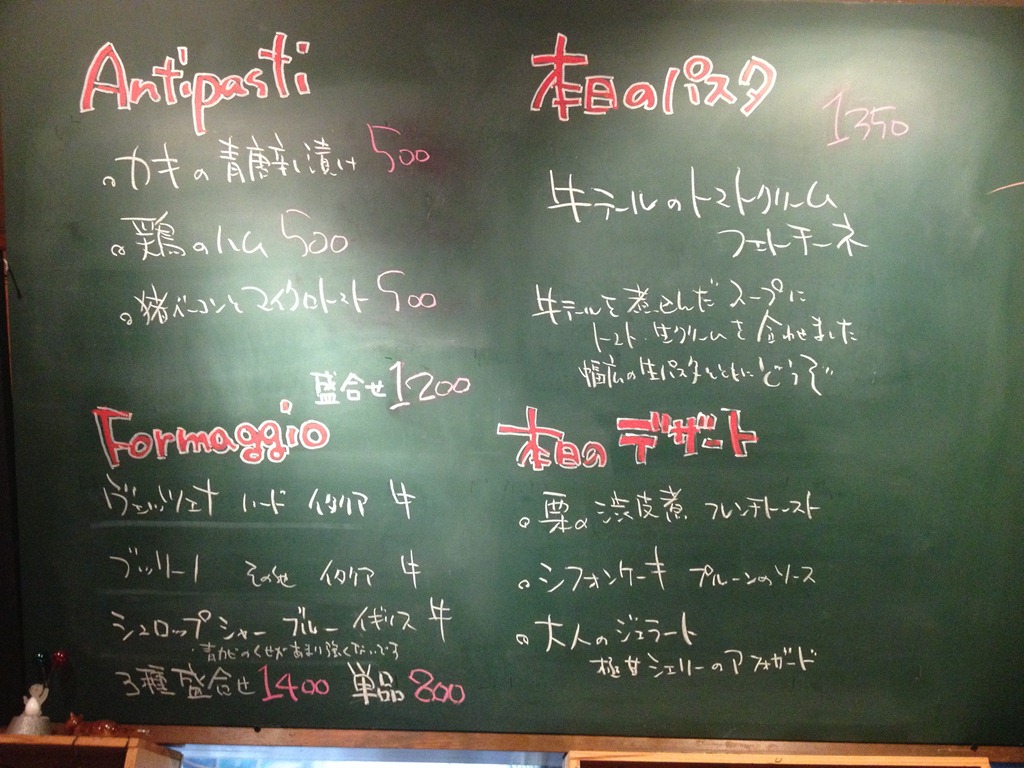 Antipasti
。カキの青唐辛し漬け 500
。鶏のハム 500
。猪ベーコンとマイクロトマト 500
盛合せ 1200
Formaggio
ヴェッツェナ ハード イタリア 牛
ブッリーノ その他 イタリア 牛
シュロップシャー ブルー イギリス 牛
・青カビのくせがあまり強くないです
3種盛合せ 1400 単品 800
本日のパスタ
1350
牛テールのトマトクリーム
フェトチーネ
牛テールを煮込んだスープに
トマト、生クリームを合わせました
幅広の生パスタとともにどうぞ
本日のデザート
。栗の渋皮煮 フレンチトースト
。シフォンケーキ プルーンのソース
。大人のジェラート
極甘シェリーのアフォガード